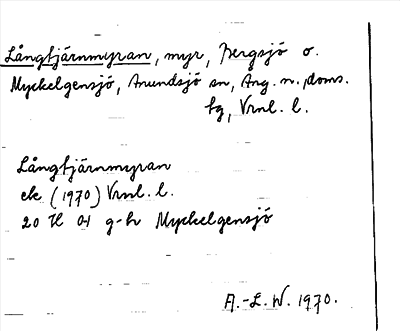 Långtjärnmyran, myr, Bergsjö o.
Myckelgensjö, Anundsjö sn, Ång. n., doms.
tg, Vrnl. l.
Långtjärnmyran
ek (1970) Vrnl. l.
20 H 04 g-h Myckelgensjö
A.-L. W. 1970.